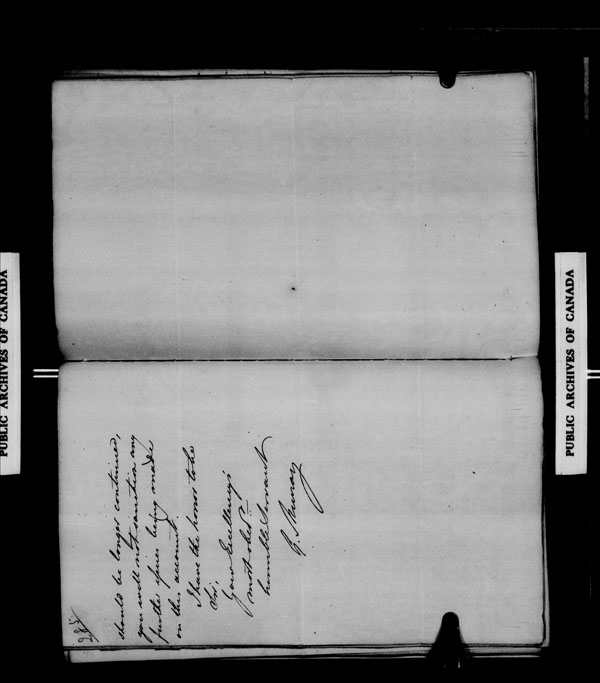 285
should be longer continued,
you will not sanction any
further issues being made
on this account.
I have the honor to be
Sir,
Your Excellency's
most obedt
humble Servant
G. Murray
PUBLIC ARCHIVES OF CANADA
PUBLIC ARCHIVES OF CANADA